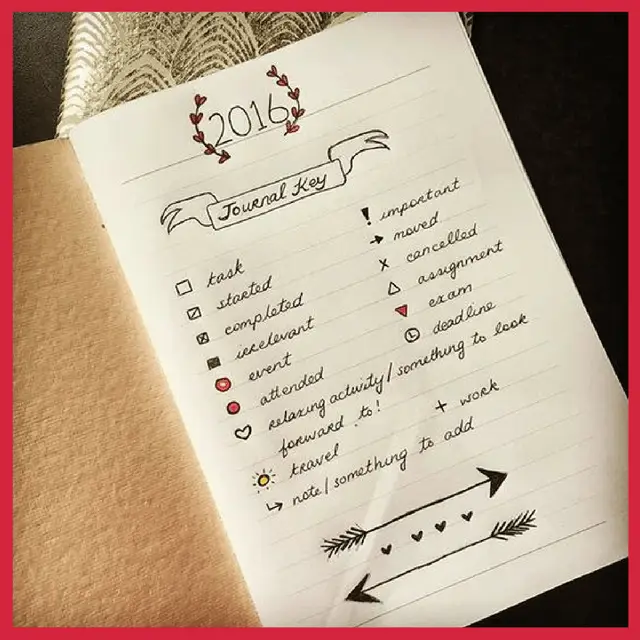 2016
Journal Key
task
started
completed
irrelevant
event
attended
relaxing activity/something to look
forward to!
travel
note/something to add
! important
moved
x cancelled
assignment
exam
deadline
+ work